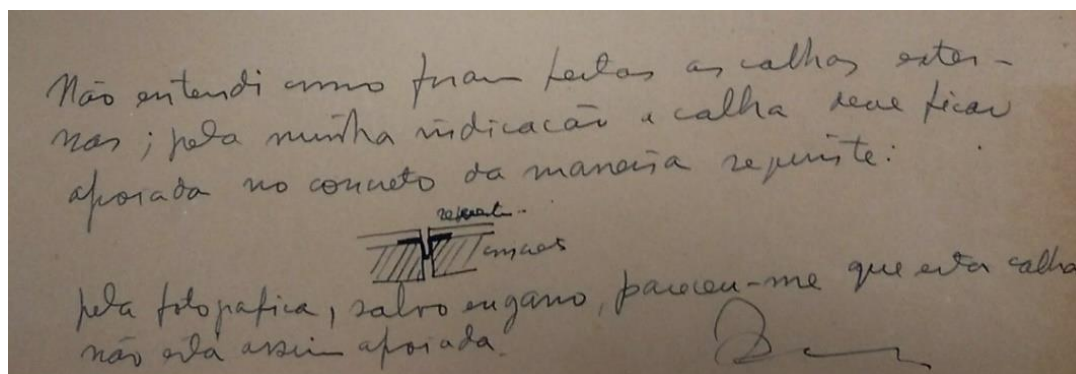 Não entendi como foram feitas as calhas exter-
nas; pela minha indicação a calha deve ficar
apoiada no concreto da maneira seguinte:
concreto
pela fotografica, salvo engano, pareceu-me que esta calha
não está assim apoiada.